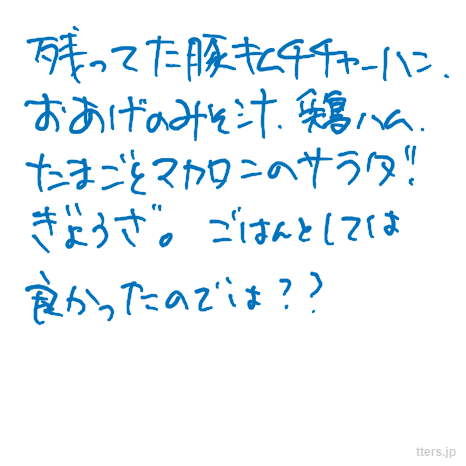 残ってた豚キムチチャーハン、
おあげのみそ汁、鶏ハム、
たまごとマカロニのサラダ!
ぎょうざ。ごはんとしては
良かったのでは??
tters.jp